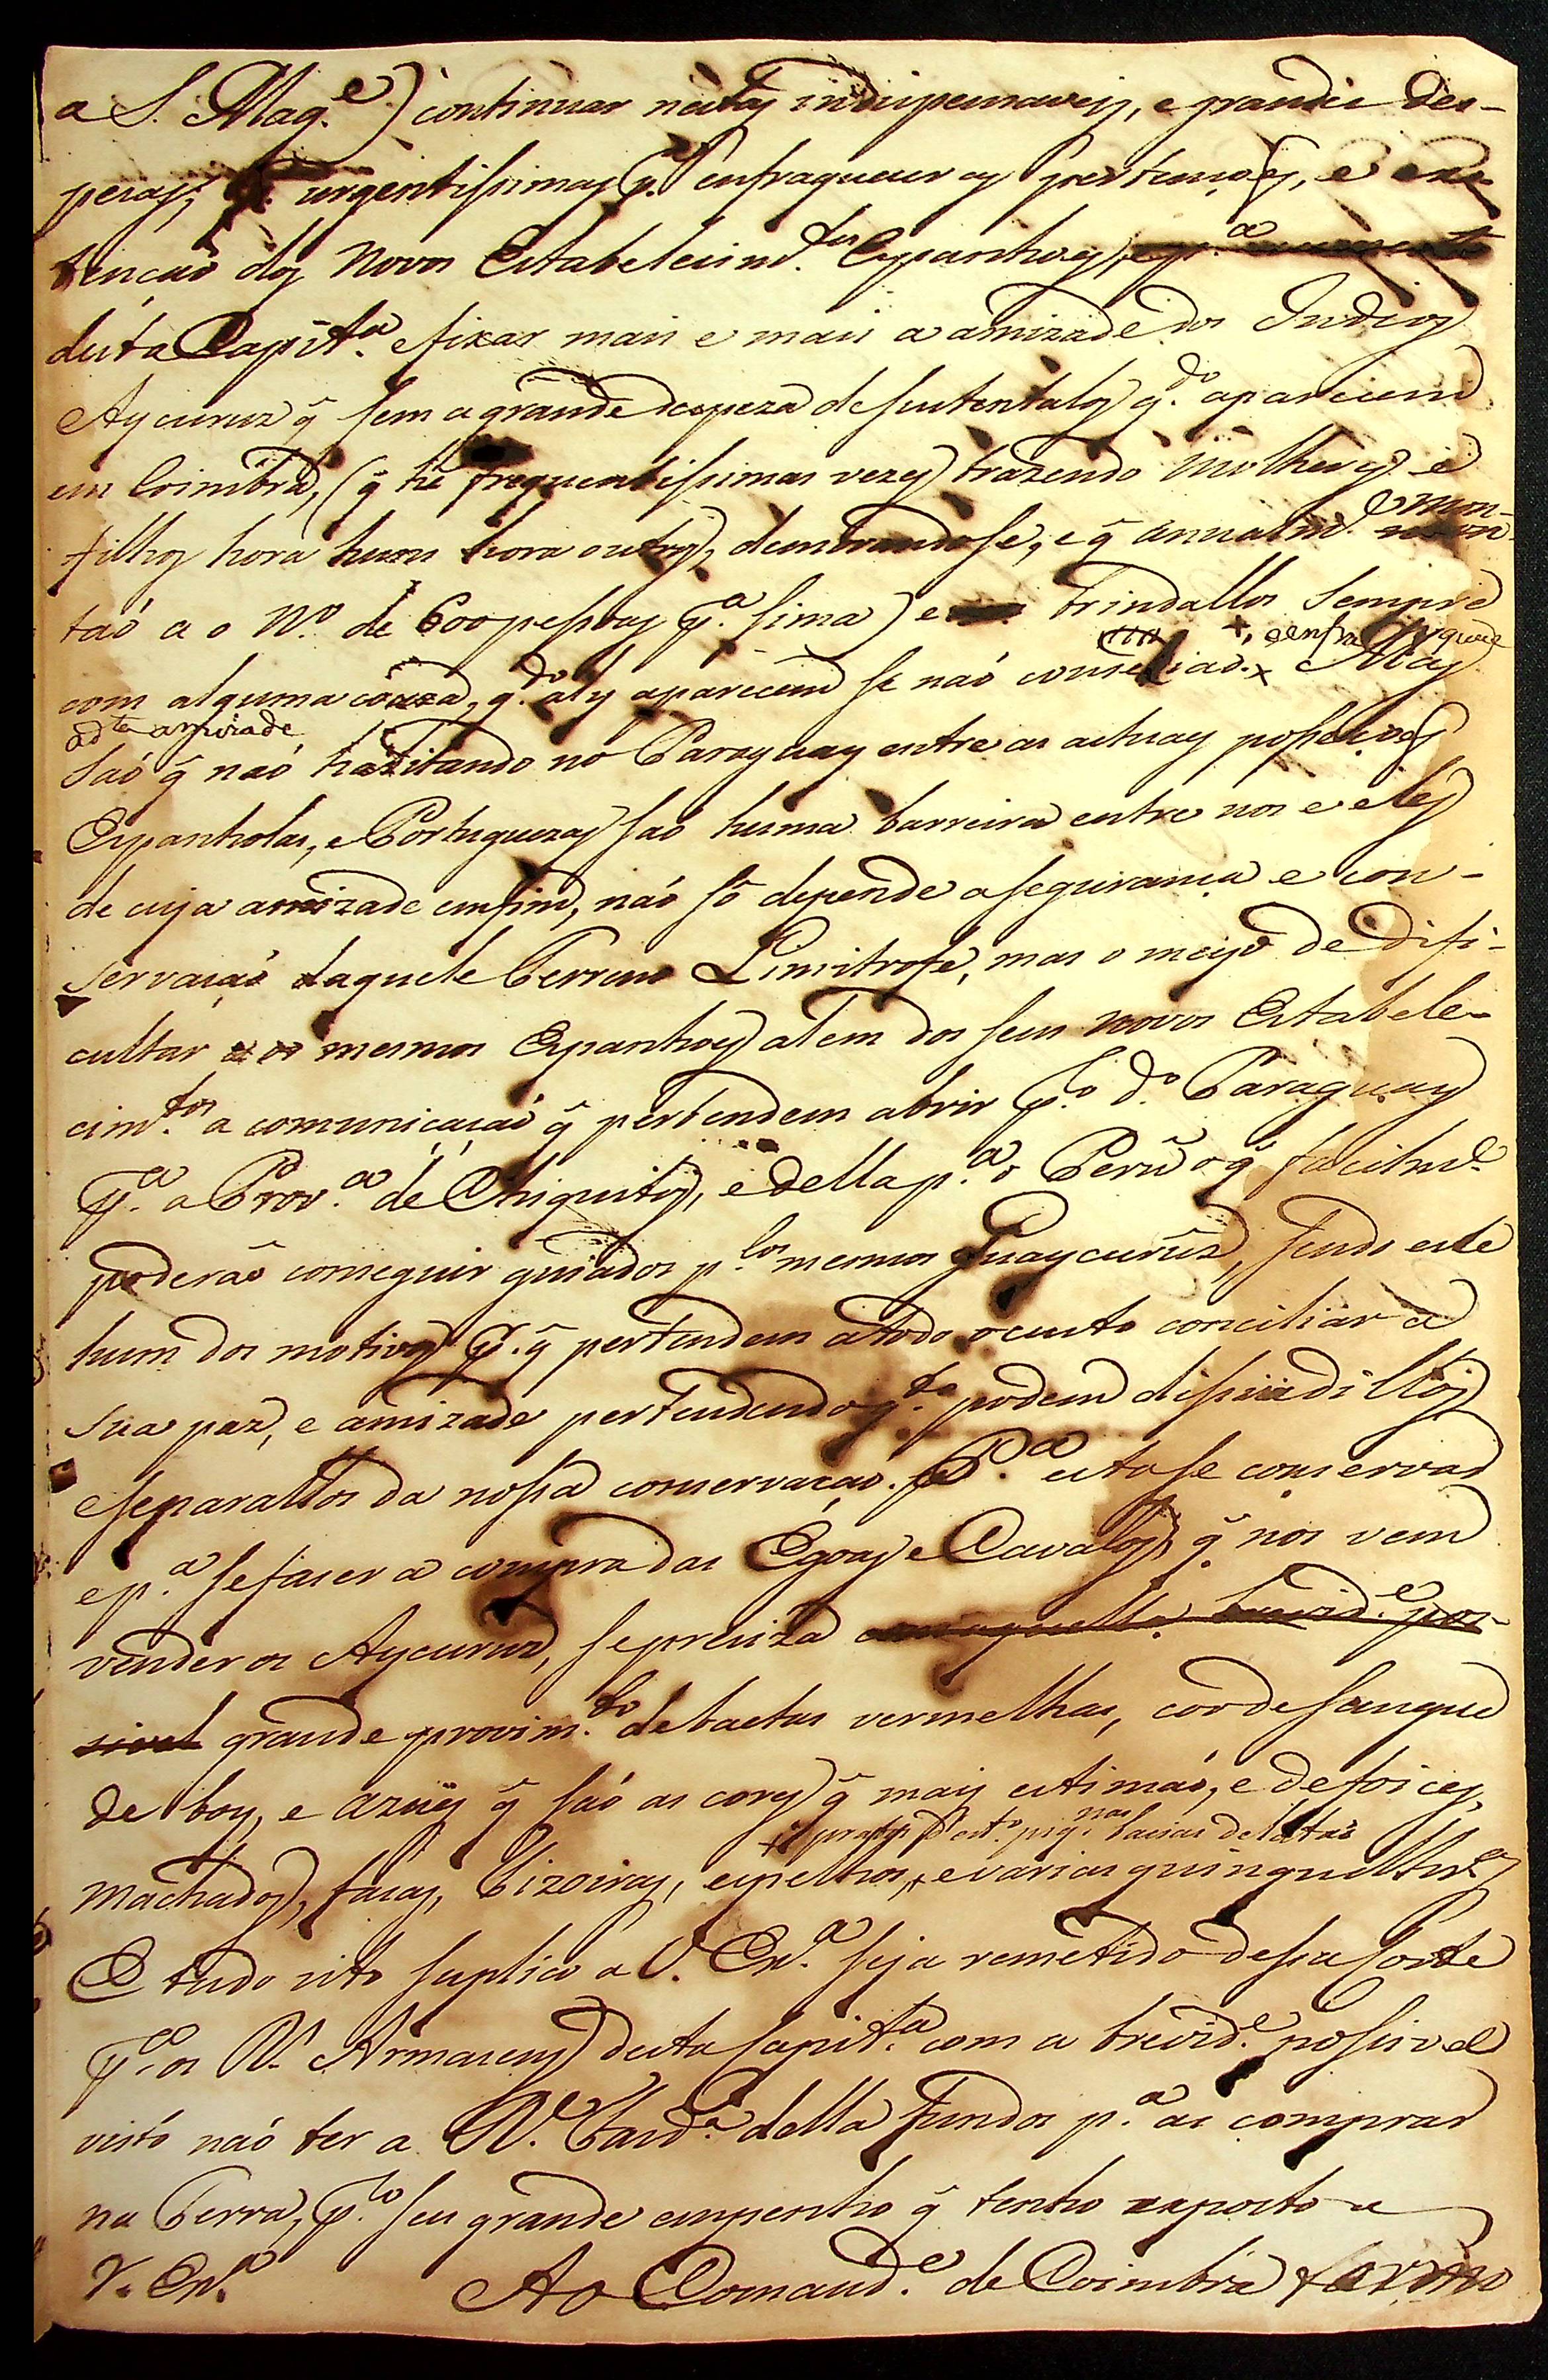 a S. Mag.e) continuar nestas indispensaveis, e grandes des-
pezas, urgentissimas p.a enfraquecer as pertençoẽs, e exs-
tencaõ dos Novos Estabelecim.tos Espanhoes, e p.a augmento
desta Capit.a e fixar mais e mais a amizade dos Indios
Aycurus q̃ sem a grande despeza de sustentalos q.do aparecem
em Coimbra, (q̃ he frequentissimas vezes) trazendo Molheres e
filhos hora huns hora outros, demorandose, e q̃ anualm.e mon-
taõ a o N.o de 600 pessoas p.a sima) e brindallos sempre
com alguma couza, q.do aly aparecem se naõ conseguia
ad.ta amizade
Saõ q̃ naõ habitando no Paraguay entre as actuaes possecoẽs
Espanholas, e Portuguezas saõ huma barreira entre nos e eles
de cuja amizade emfim, naõ só depende a segurança e con-
servaçaõ daquele Terreno Limitrofe, mas o meyo de difi-
cultar a os mesmos Espanhoes alem dos seus novos Estabele-
cim.tos a comunicaçaõ q̃ pertendem abrir p.lo d.o Paraguay
p.a a Prov.a de Chiquitos, e della p.a o Perú o q̃ facilm.e
poderaõ conseguir guiados p.los mesmos Guaycurús, sendo este
hum dos motivos p.r q̃ pertendem a todo o custo conciliar a
sua paz, e amizade pertendendo q.to podem dissuadillos
e separallos da nossa conservaçaõ. P.a esta se conservar
e p.a se fazer a compra das Egoas e Cavalos, q̃ nos vem
vender os Aycurus, se preciza com aquella brevid.e pos-
sivel grande provim.to de baetas vermelhas, cor de sangue
de boy, e azuis q̃ saõ as cores q̃ mais estimaõ, e de foices,
pratos d'est.o peq.nas bacias de lataõ
Machados, facas, Tizoiras, espelhos, e varias quinquilhr.as
E tudo isto suplico a V. Ex.a seja remetido dessa Corte
p.a os R. Armazens desta Capit.a com a brevid.e possivel
visto naõ ter a R. Fazd.a della Fundos p.a as comprar
na Terra, p.lo seu grande empenho q̃ tenho exposto a
V. Ex.a Ao Comand.e de Coimbra torno